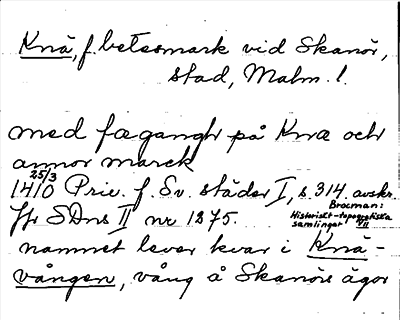 Knä, f. betesmark vid Skanör,
stad, Malm. l.
med fægangh på Knæ och
annor marck
25/3
1410 Priv. f. Sv. städer I, s. 314. avskr.
Brocman:
Historiskt-topografiska
samlingar VII
Jfr SDns II nr 1275.
namnet lever kvar i Knä-
vången, vång å Skanörs ägor